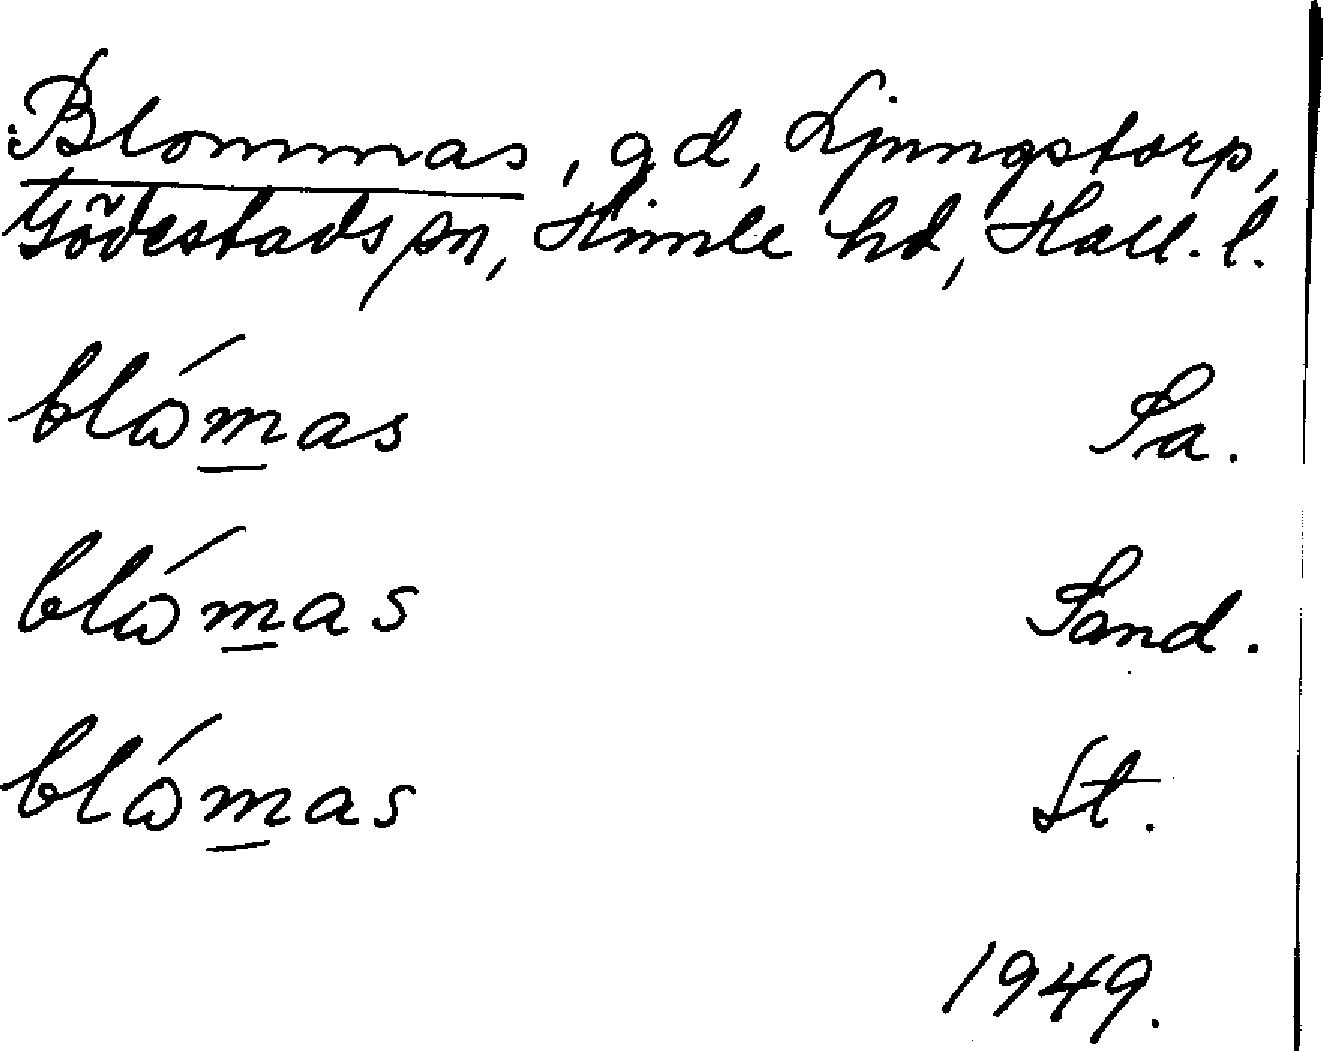 Blommas, gd, Ljungstorp,
Gödestads sn, Himle hd, Hall. l.
blɷ́m̲as Sa.
blɷ́m̲as Sand.
blɷ́m̲as St.
1949.